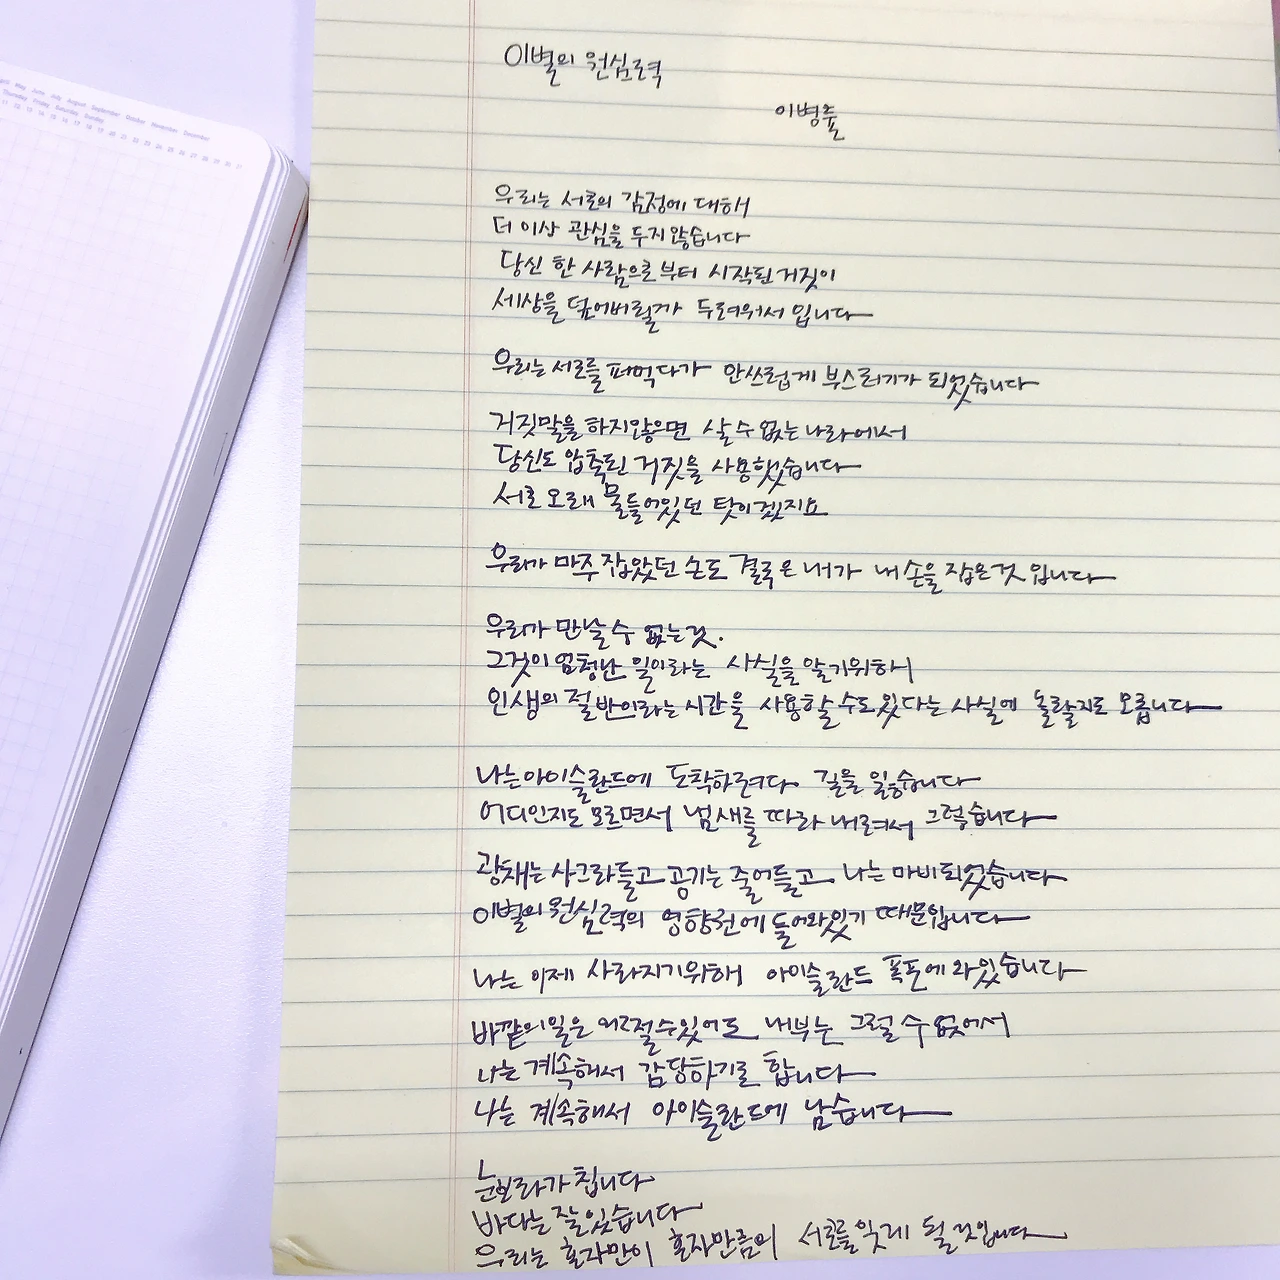 April May June July August September October November December
Thursday Friday Saturday Sunday
11 12 13 14 15 16 17 18 19 20 21 22 23 24 25 26 27 28 29 30 31
이별의 원심력
이병률
우리는 서로의 감정에 대해
더 이상 관심을 두지 않습니다
당신 한 사람으로부터 시작된 거짓이
세상을 덮어버릴까 두려워서입니다
우리는 서로를 파먹다가 안쓰럽게 부스러기가 되었습니다
거짓말을 하지 않으면 살 수 없는 나라에서
당신도 압축된 거짓을 사용했습니다
서로 오래 물들어있던 탓이겠지요
우리가 마주 잡았던 손도 결국은 내가 내 손을 잡은 것입니다
우리가 만날 수 없는 것.
그것이 엄청난 일이라는 사실을 알기 위해
인생의 절반이라는 시간을 사용할 수도 있다는 사실에 놀랄지도 모릅니다
나는 아이슬란드에 도착하려다 길을 잃습니다
어디인지도 모르면서 냄새를 따라 내려서 그렇습니다
광채는 사그라들고 공기는 줄어들고 나는 마비되었습니다
이별의 원심력의 영향권에 들어와 있기 때문입니다
나는 이제 사라지기 위해 아이슬란드 폭포에 와있습니다
바깥의 일은 어쩔 수 있어도 내부는 그럴 수 없어서
나는 계속해서 감당하기로 합니다
나는 계속해서 아이슬란드에 남습니다
눈보라가 칩니다
바다는 잘 있습니다
우리는 혼자만이 혼자만큼의 서로를 잊게 될 것입니다